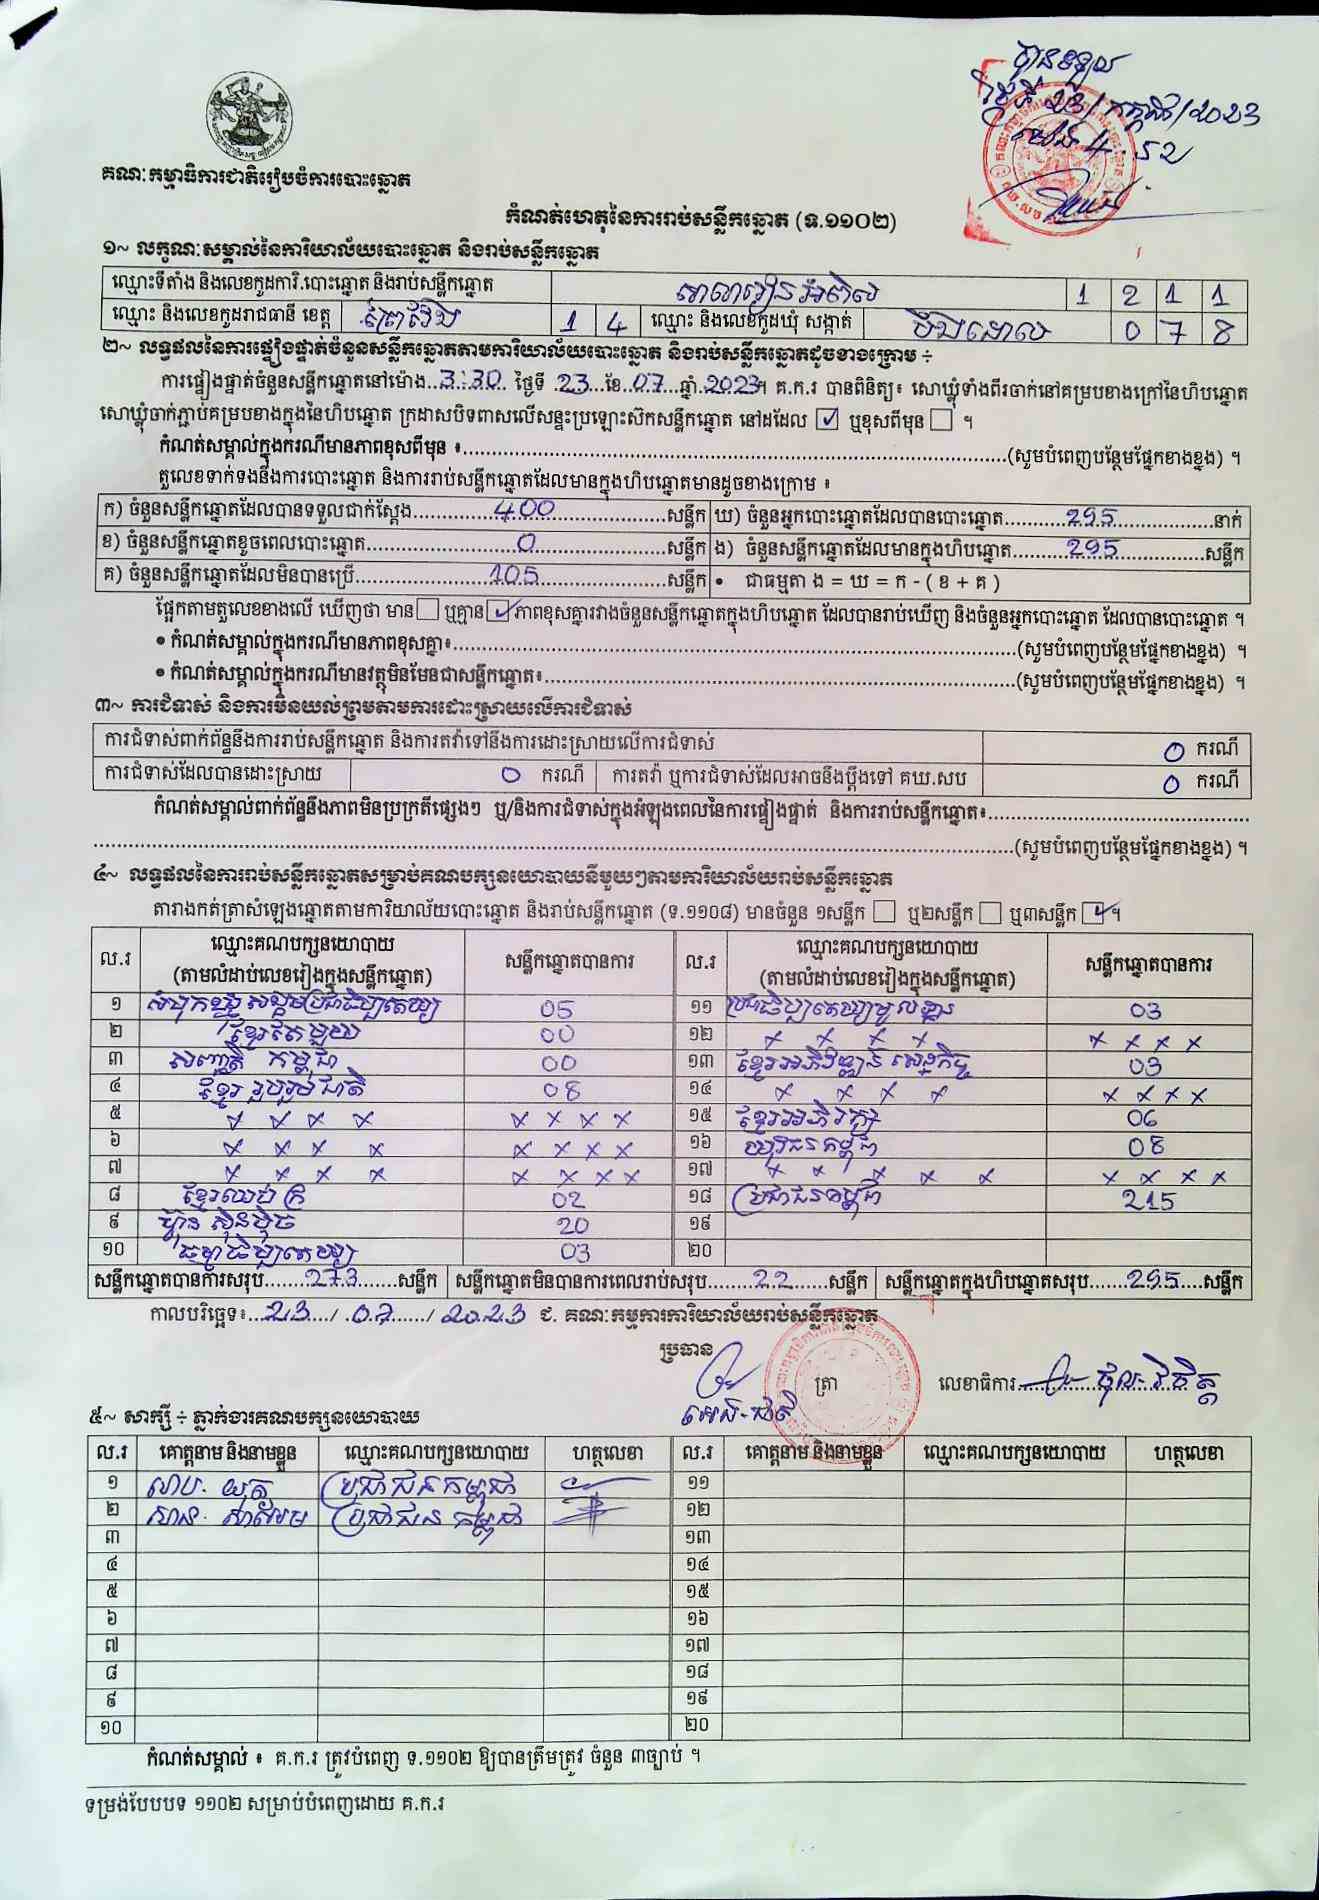 បានទទួល
ថ្ងៃទី 23/កក្កដា/2023
ម៉ោង 4:52
គណៈកម្មាធិការជាតិរៀបចំការបោះឆ្នោត
កំណត់ហេតុនៃការរាប់សន្លឹកឆ្នោត (ទ.១១០២)
១~ លក្ខណៈសម្គាល់នៃការិយាល័យបោះឆ្នោត និងរាប់សន្លឹកឆ្នោត
ឈ្មោះទីតាំង និងលេខកូដការិ.បោះឆ្នោត និងរាប់សន្លឹកឆ្នោត សាលារៀនអំពិល 1 2 1 1
ឈ្មោះ និងលេខកូដរាជធានី ខេត្ត ព្រៃវែង 1 4 ឈ្មោះ និងលេខកូដឃុំ សង្កាត់ បឹងដោល 0 7 8
២~ លទ្ធផលនៃការផ្ទៀងផ្ទាត់ចំនួនសន្លឹកឆ្នោតតាមការិយាល័យបោះឆ្នោត និងរាប់សន្លឹកឆ្នោតដូចខាងក្រោម ÷
ការផ្ទៀងផ្ទាត់ចំនួនសន្លឹកឆ្នោតនៅម៉ោង..3:30.. ថ្ងៃទី .23...ខែ.07...ឆ្នាំ.2023។ គ.ក.រ បានពិនិត្យ៖ សោឃ្លុំទាំងពីរចាក់នៅគម្របខាងក្រៅនៃហិបឆ្នោត
សោឃ្លុំចាក់ភ្ជាប់គម្របខាងក្នុងនៃហិបឆ្នោត ក្រដាសបិទពាសលើសន្ទះប្រឡោះស៊កសន្លឹកឆ្នោត នៅដដែល ☑ ឬខុសពីមុន ☐ ។
កំណត់សម្គាល់ក្នុងករណីមានភាពខុសពីមុន ៖..........(សូមបំពេញបន្ថែមផ្នែកខាងខ្នង) ។
តួលេខទាក់ទងនឹងការបោះឆ្នោត និងការរាប់សន្លឹកឆ្នោតដែលមានក្នុងហិបឆ្នោតមានដូចខាងក្រោម ៖
ក) ចំនួនសន្លឹកឆ្នោតដែលបានទទួលជាក់ស្តែង.....400.....សន្លឹក ឃ) ចំនួនអ្នកបោះឆ្នោតដែលបានបោះឆ្នោត.....295.....នាក់
ខ) ចំនួនសន្លឹកឆ្នោតខូចពេលបោះឆ្នោត.....0.....សន្លឹក ង) ចំនួនសន្លឹកឆ្នោតដែលមានក្នុងហិបឆ្នោត.....295.....សន្លឹក
គ) ចំនួនសន្លឹកឆ្នោតដែលមិនបានប្រើ.....105.....សន្លឹក • ជាធម្មតា ង = ឃ = ក - ( ខ + គ )
ផ្អែកតាមតួលេខខាងលើ ឃើញថា មាន ☐ ឬគ្មាន ☑ ភាពខុសគ្នារវាងចំនួនសន្លឹកឆ្នោតក្នុងហិបឆ្នោត ដែលបានរាប់ឃើញ និងចំនួនអ្នកបោះឆ្នោត ដែលបានបោះឆ្នោត ។
• កំណត់សម្គាល់ក្នុងករណីមានភាពខុសគ្នា៖..........(សូមបំពេញបន្ថែមផ្នែកខាងខ្នង) ។
• កំណត់សម្គាល់ក្នុងករណីមានវត្ថុមិនមែនជាសន្លឹកឆ្នោត៖..........(សូមបំពេញបន្ថែមផ្នែកខាងខ្នង) ។
៣~ ការជំទាស់ និងការមិនយល់ព្រមតាមការដោះស្រាយលើការជំទាស់
ការជំទាស់ពាក់ព័ន្ធនឹងការរាប់សន្លឹកឆ្នោត និងការតវ៉ាទៅនឹងការដោះស្រាយលើការជំទាស់ 0 ករណី
ការជំទាស់ដែលបានដោះស្រាយ 0 ករណី ការតវ៉ា ឬការជំទាស់ដែលអាចនឹងប្តឹងទៅ គឃ.សប 0 ករណី
កំណត់សម្គាល់ពាក់ព័ន្ធនឹងភាពមិនប្រក្រតីផ្សេងៗ ឬ/និងការជំទាស់ក្នុងអំឡុងពេលនៃការផ្ទៀងផ្ទាត់ និងការរាប់សន្លឹកឆ្នោត៖..........
..........(សូមបំពេញបន្ថែមផ្នែកខាងខ្នង) ។
៤~ លទ្ធផលនៃការរាប់សន្លឹកឆ្នោតសម្រាប់គណបក្សនយោបាយនីមួយៗតាមការិយាល័យរាប់សន្លឹកឆ្នោត
តារាងកត់ត្រាសំឡេងឆ្នោតតាមការិយាល័យបោះឆ្នោត និងរាប់សន្លឹកឆ្នោត (ទ.១១០៨) មានចំនួន ១សន្លឹក ☐ ឬ២សន្លឹក ☐ ឬ៣សន្លឹក ☑ ។
ល.រ ឈ្មោះគណបក្សនយោបាយ (តាមលំដាប់លេខរៀងក្នុងសន្លឹកឆ្នោត) សន្លឹកឆ្នោតបានការ ល.រ ឈ្មោះគណបក្សនយោបាយ (តាមលំដាប់លេខរៀងក្នុងសន្លឹកឆ្នោត) សន្លឹកឆ្នោតបានការ
១ សំបុកឃ្មុំសង្គមប្រជាធិបតេយ្យ 05 ១១ ប្រជាធិបតេយ្យមូលដ្ឋាន 03
២ ខ្មែរតែមួយ 00 ១២ x x x x x x x x
៣ សញ្ជាតិកម្ពុជា 00 ១៣ ខ្មែរអភិវឌ្ឍន៍សេដ្ឋកិច្ច 03
៤ ខ្មែររួបរួមជាតិ 08 ១៤ x x x x x x x x
៥ x x x x x x x x ១៥ ខ្មែរអភិរក្ស 06
៦ x x x x x x x x ១៦ យុវជនកម្ពុជា 08
៧ x x x x x x x x ១៧ x x x x x x x x x
៨ ខ្មែរឈប់ក្រ 02 ១៨ ប្រជាជនកម្ពុជា 215
៩ ហ្វ៊ុនស៊ិនប៉ិច 20 ១៩
១០ ធម្មាធិបតេយ្យ 03 ២០
សន្លឹកឆ្នោតបានការសរុប.....273.....សន្លឹក សន្លឹកឆ្នោតមិនបានការពេលរាប់សរុប.....22.....សន្លឹក សន្លឹកឆ្នោតក្នុងហិបឆ្នោតសរុប.....295.....សន្លឹក
កាលបរិច្ឆេទ៖...23.../.07...../2023 ជ. គណៈកម្មការការិយាល័យរាប់សន្លឹកឆ្នោត
ប្រធាន
ត្រា លេខាធិការ.....ផុល វិចិត្ត
៥~ សាក្សី ÷ ភ្នាក់ងារគណបក្សនយោបាយ
ល.រ គោត្តនាម និងនាមខ្លួន ឈ្មោះគណបក្សនយោបាយ ហត្ថលេខា ល.រ គោត្តនាម និងនាមខ្លួន ឈ្មោះគណបក្សនយោបាយ ហត្ថលេខា
១ ប្រជាជនកម្ពុជា ១១
២ ប្រជាជនកម្ពុជា ១២
៣ ១៣
៤ ១៤
៥ ១៥
៦ ១៦
៧ ១៧
៨ ១៨
៩ ១៩
១០ ២០
កំណត់សម្គាល់ ៖ គ.ក.រ ត្រូវបំពេញ ទ.១១០២ ឱ្យបានត្រឹមត្រូវ ចំនួន ៣ច្បាប់ ។
ទម្រង់បែបបទ ១១០២ សម្រាប់បំពេញដោយ គ.ក.រ